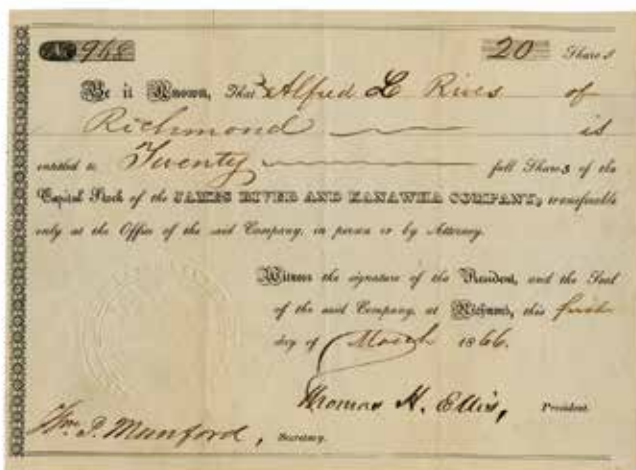 No. 968 20 Shares
Be it Known, That Alfred L Rives of
Richmond is
entitled to Twenty full Shares of the
Capital Stock of the JAMES RIVER AND KANAWHA COMPANY; transferable
only at the Office of the said Company, in person or by Attorney.
Witness the signature of the President, and the Seal
of the said Company, at Richmond, this first
day of March 1866.
Thomas H. Ellis, President.
Wm. P. Munford, Secretary.